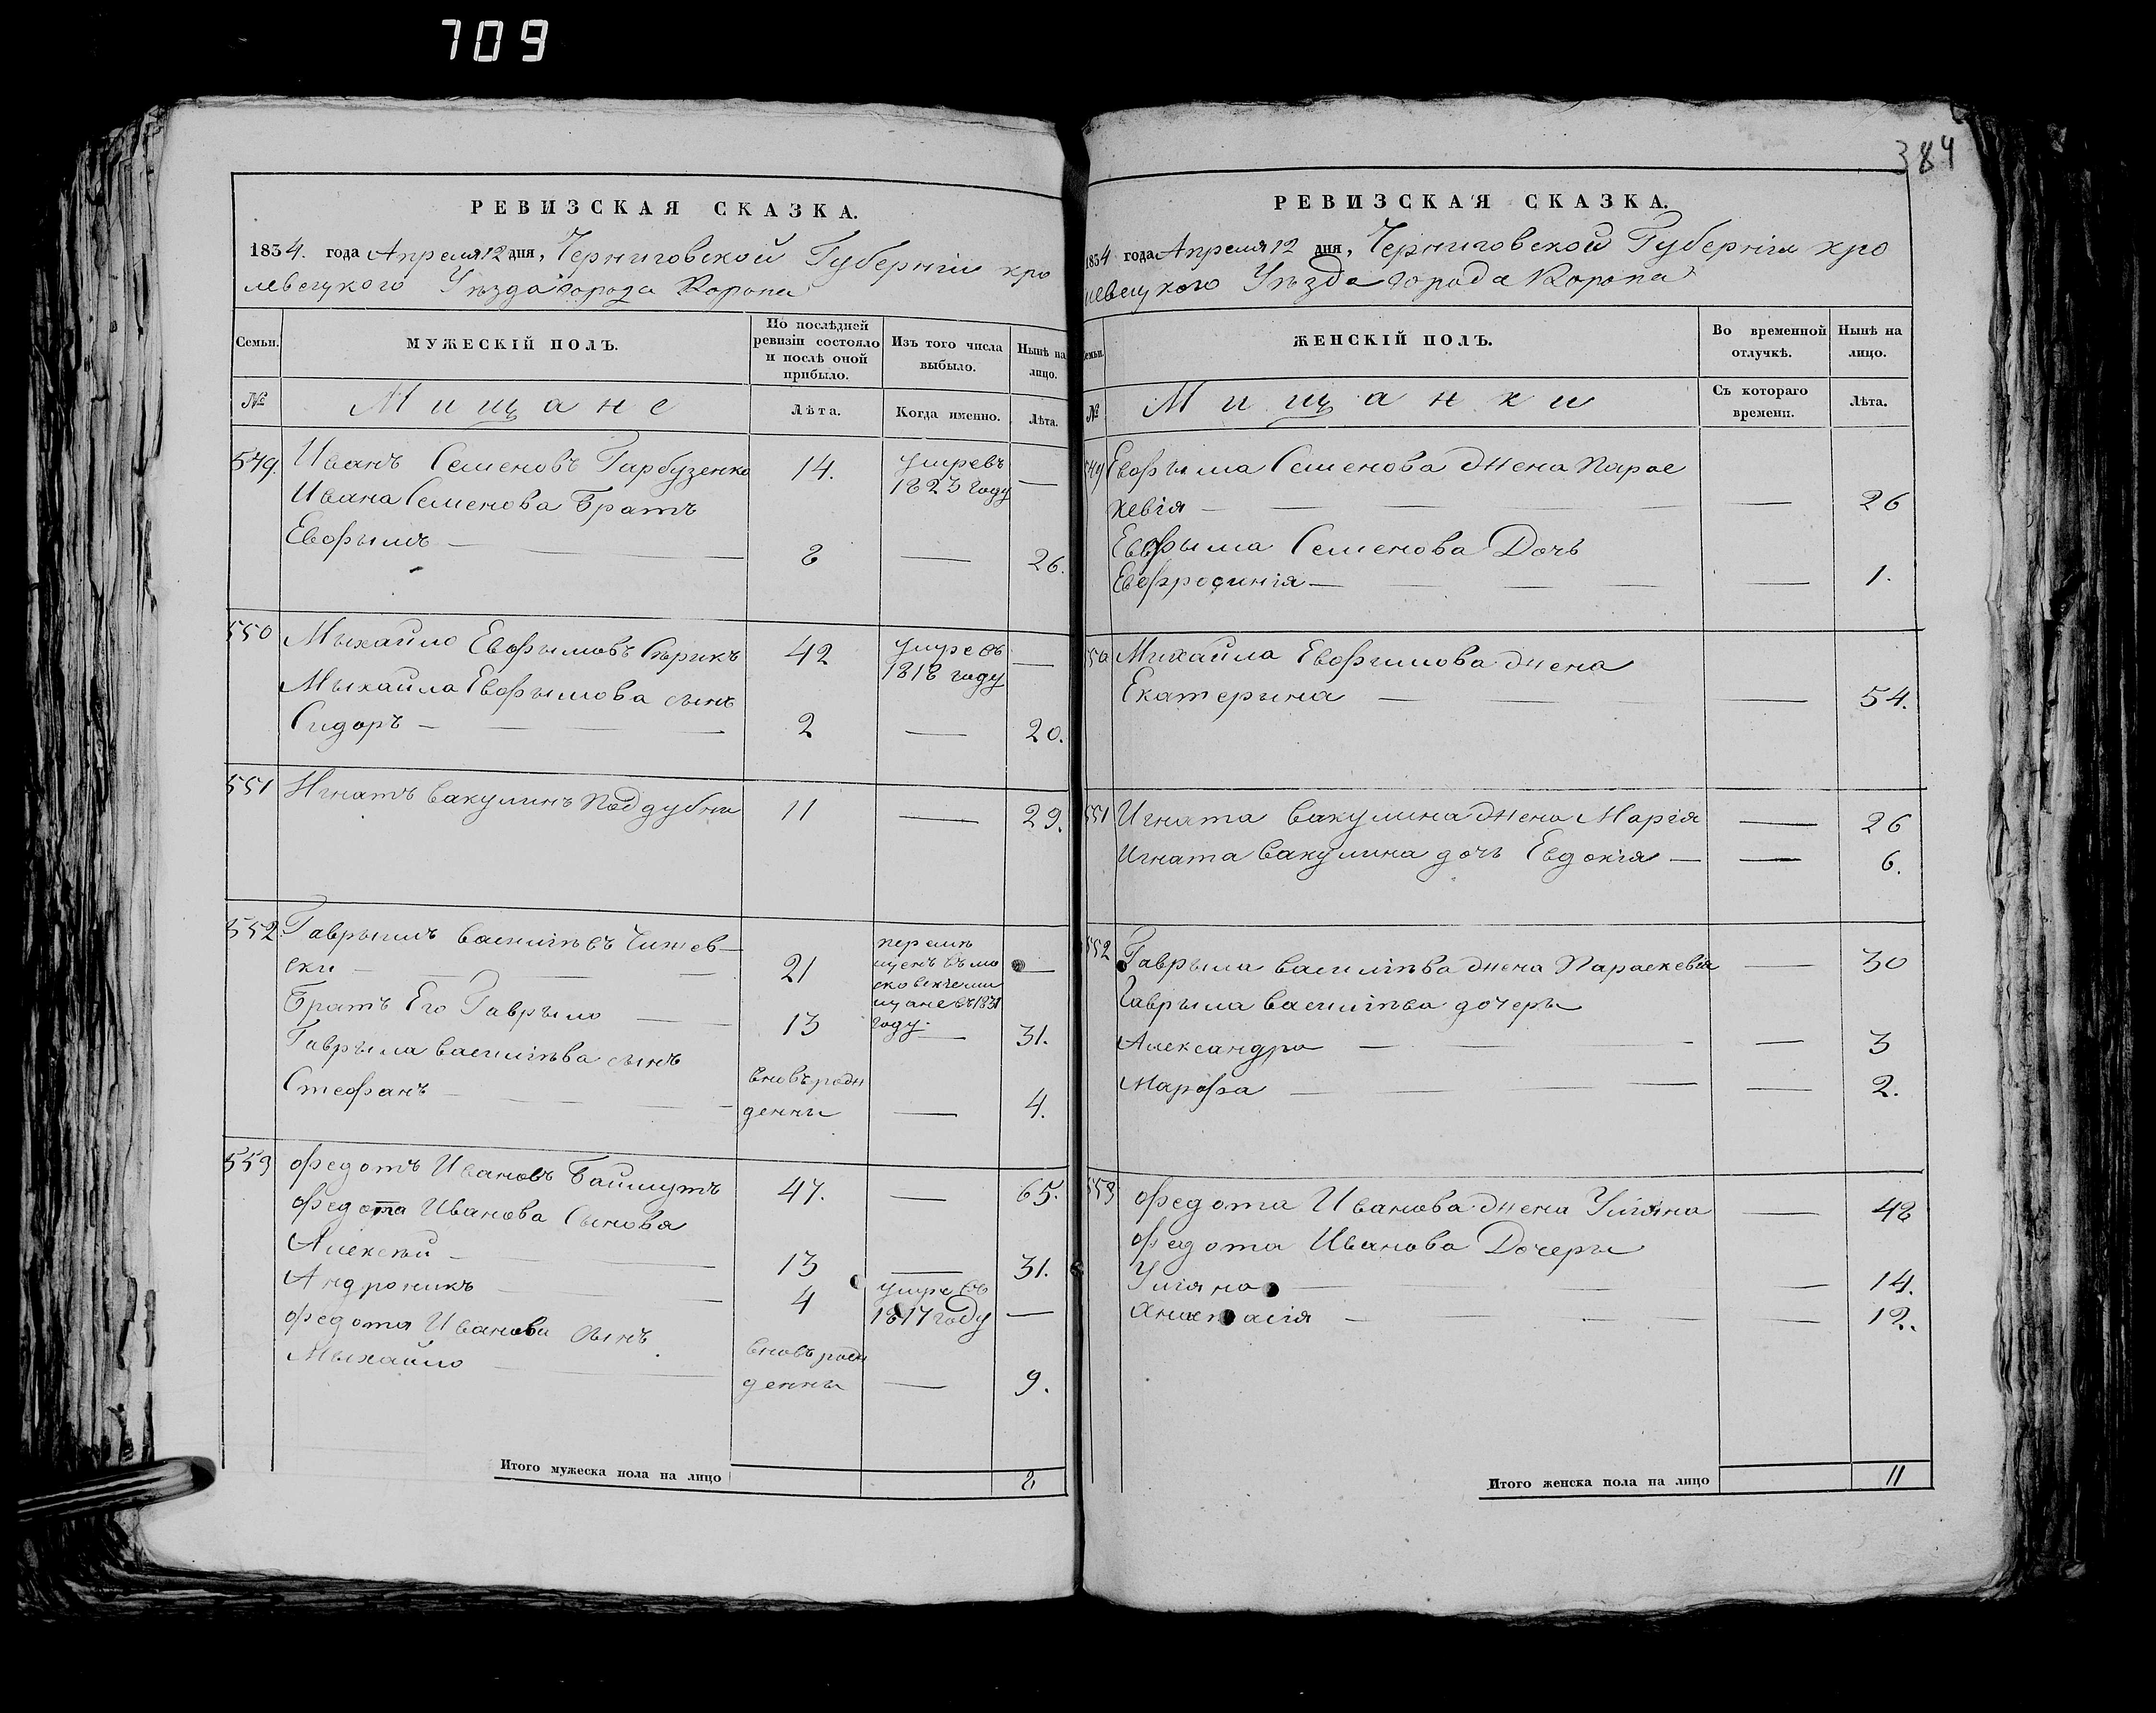 709
РЕВИЗСКАЯ СКАЗКА.
1834. года Апреля 12 дня, Черниговской Губернiи кро
левецкого Уѣзда города Коропа
Семьи.
МУЖЕСКIЙ ПОЛЪ.
По послѣдней ревизiи состояло и послѣ оной прибыло.
Изъ того числа выбыло.
Нынѣ на лицо.
№
Мищане
Лѣта.
Когда именно.
Лѣта.
549. Иванъ Семеновъ Гарбузенко 14. умревъ 1823 году —
Ивана Семенова Братъ
Евфымъ — 8 — 26.
550 Мыхайло Евфымовъ Сѣрикъ 42 умревъ 1818 году —
Мыхайла Евфымова сынъ
Сидоръ — 2 — 20.
551 Игнатъ Вакулинъ Поддубни 11 — 29.
552. Василiевъ
ски — 21 перемѣ
щенъ въ мо
сковскiе ми
щане въ 1831
году. —
Братъ Его Гаврыло — 13 — 31.
Гаврыла Василiѣва сынъ
Стефанъ — вновърож
денни — 4.
553 Федотъ Ивановъ 47. — 65.
Федота Иванова Сыновя
Алексѣй — 13 — 31.
Андроникъ — 4 умревъ 1817 году —
Федота Иванова Сынъ
Мыхайло — вновърож
денни — 9.
Итого мужеска пола на лицо 8
384
РЕВИЗСКАЯ СКАЗКА.
1834 года Апреля 12 дня, Черниговской Губернiи кро
левецкого Уѣзда города Коропа
Семьи.
ЖЕНСКIЙ ПОЛЪ.
Во временной отлучкѣ.
Нынѣ на лицо.
№
Мищанки
Съ котораго времени.
Лѣта.
549 Евфыма Семенова Жена Парас
кевiя — — 26
Евфыма Семенова Дочъ
Евфросинiя — — 1.
550 Михайла Евфимова жена
Екатерына — — 54.
551 Игната Вакулина жена Марiя — 26
Игната Вакулина дочъ Евдокiя — — 6.
552 Гаврыла Василiѣва жена Параскевiя — 30
Гаврыла Василiѣва дочеры
Александра — — 3
Марфа — — 2.
553 Федота Иванова жена Улiяна — 48
Федота Иванова Дочеры
Улiяна — — 14.
Анастасiя — — 12.
Итого женска пола на лицо 11